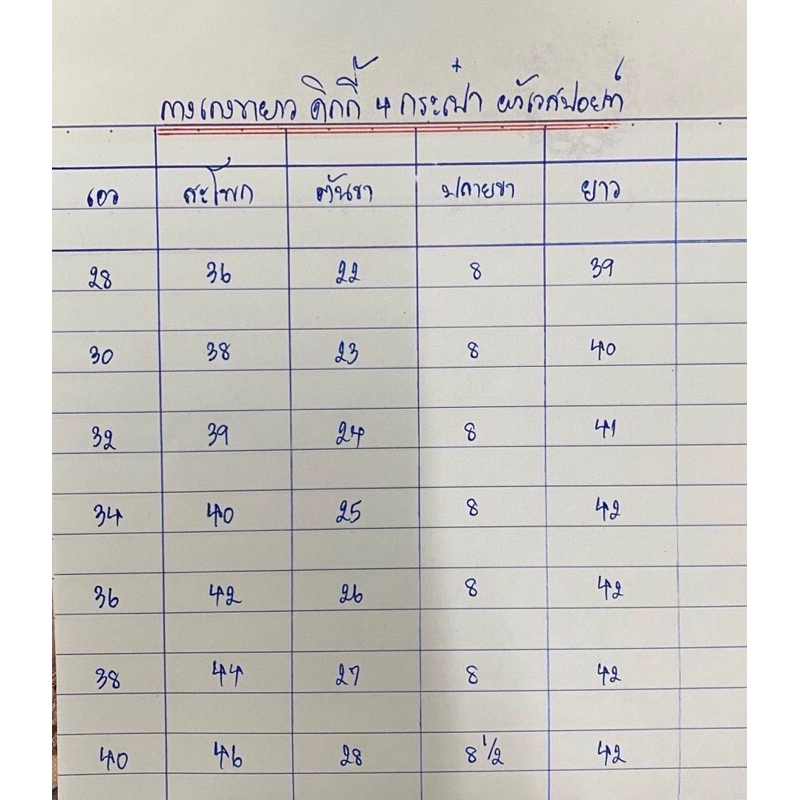 กางเกงขายาว ดิกกี้ 4 กระเป๋า ผ้าเวสปอยท์
เอว สะโพก ต้นขา ปลายขา ยาว
28 36 22 8 39
30 38 23 8 40
32 39 24 8 41
34 40 25 8 42
36 42 26 8 42
38 44 27 8 42
40 46 28 8 1/2 42